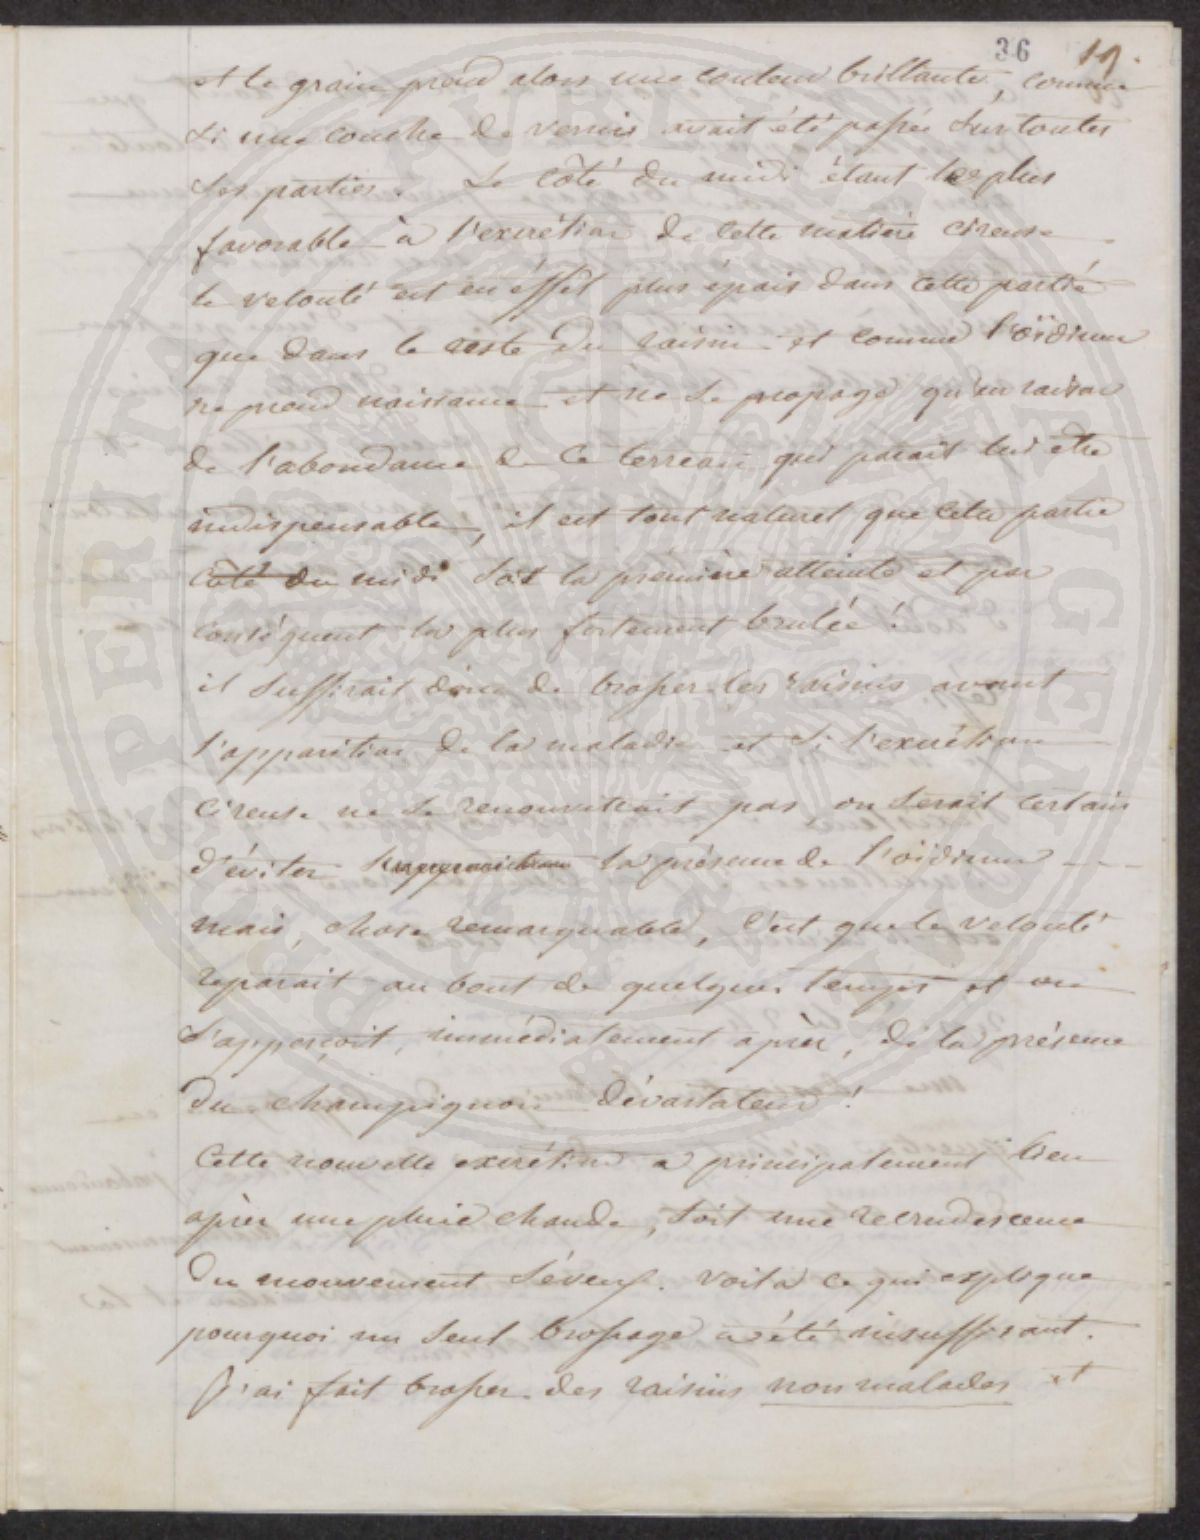 36 19.
et le grain prend alors une couleur brillante, comme
si une couche de vernis avait été passée sur toutes
ses parties. Le côté du midi étant le plus
favorable à l'excrétion de cette matière cireuse
le velouté est en éffet plus épais dans cette partie
que dans le reste du raisin et comme l'oïdium
ne prend naissance et ne se propage qu'en raison
de l'abondance de ce terreau qui parait lui etre
indispensable, il est tout naturel que cette partie
côté du midi soit la première atteinte et par
conséquent la plus fortement brulée !
il suffirait donc de brosser les raisins avant
l'apparition de la maladie et si l'excrétion
cireuse ne se renouvellait pas, on serait certain
d'éviter l'apparition la présence de l'oïdium
mais, chose remarquable, c'est que le velouté
reparait au bout de quelques temps et on
s'apperçoit, immédiatement après, de la présence
du champignon dévastateur !
Cette nouvelle excrétion a principalement lieu
après une pluie chaude, soit une recrudescence
du mouvement séveux. voila ce qui explique
pourquoi un seul brossage a été insuffisant.
J'ai fait brosser des raisins non malades et
PERITA